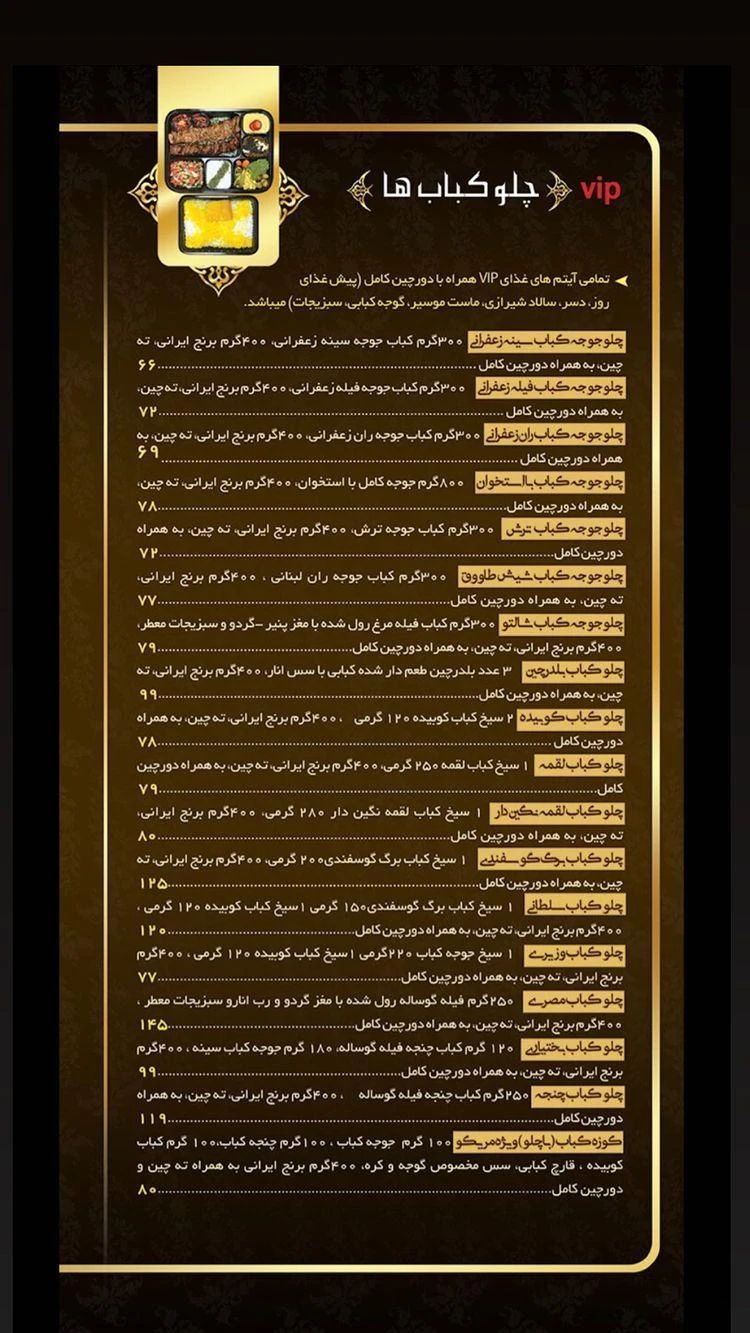 vip چلو کباب ها
تمامی آیتم های غذای VIP همراه با دورچین کامل (پیش غذای
روز، دسر، سالاد شیرازی، ماست موسیر، گوجه کبابی، سبزیجات) میباشد.
چلو جوجه کباب سینه زعفرانی ۳۰۰گرم کباب جوجه سینه زعفرانی، ۴۰۰گرم برنج ایرانی، ته
چین، به همراه دورچین کامل ۶۶
چلو جوجه کباب فیله زعفرانی ۳۰۰گرم کباب جوجه فیله زعفرانی، ۴۰۰گرم برنج ایرانی، ته چین،
به همراه دورچین کامل ۷۲
چلو جوجه کباب ران زعفرانی ۳۰۰گرم کباب جوجه ران زعفرانی، ۴۰۰گرم برنج ایرانی، ته چین، به
همراه دورچین کامل ۶۹
چلو جوجه کباب بااستخوان ۸۰۰گرم جوجه کامل با استخوان، ۴۰۰گرم برنج ایرانی، ته چین،
به همراه دورچین کامل ۷۸
چلو جوجه کباب ترش ۳۰۰گرم کباب جوجه ترش، ۴۰۰گرم برنج ایرانی، ته چین، به همراه
دورچین کامل ۷۲
چلو جوجه کباب شیش طاووق ۳۰۰گرم کباب جوجه ران لبنانی ، ۴۰۰گرم برنج ایرانی،
ته چین، به همراه دورچین کامل ۷۷
چلو جوجه کباب شالتو ۳۰۰گرم کباب فیله مرغ رول شده با مغز پنیر -گردو و سبزیجات معطر،
۴۰۰گرم برنج ایرانی، ته چین، به همراه دورچین کامل ۷۹
چلو کباب بلدرچین ۳ عدد بلدرچین طعم دار شده کبابی با سس انار، ۴۰۰گرم برنج ایرانی، ته
چین، به همراه دورچین کامل ۹۹
چلو کباب کوبیده ۲ سیخ کباب کوبیده ۱۲۰ گرمی ، ۴۰۰گرم برنج ایرانی، ته چین، به همراه
دورچین کامل ۷۸
چلو کباب لقمه ۱ سیخ کباب لقمه ۲۵۰ گرمی، ۴۰۰گرم برنج ایرانی، ته چین، به همراه دورچین
کامل ۷۹
چلو کباب لقمه نگین دار ۱ سیخ کباب لقمه نگین دار ۲۸۰ گرمی، ۴۰۰گرم برنج ایرانی،
ته چین، به همراه دورچین کامل ۸۰
چلو کباب برگ گوسفندی ۱ سیخ کباب برگ گوسفندی۲۰۰ گرمی، ۴۰۰گرم برنج ایرانی، ته
چین، به همراه دورچین کامل ۱۲۵
چلو کباب سلطانی ۱ سیخ کباب برگ گوسفندی۱۵۰ گرمی ۱سیخ کباب کوبیده ۱۲۰ گرمی ،
۴۰۰گرم برنج ایرانی، ته چین، به همراه دورچین کامل ۱۲۰
چلو کباب وزیری ۱ سیخ جوجه کباب ۲۲۰گرمی ۱سیخ کباب کوبیده ۱۲۰ گرمی ، ۴۰۰گرم
برنج ایرانی، ته چین، به همراه دورچین کامل ۷۷
چلو کباب مصری ۲۵۰گرم فیله گوساله رول شده با مغز گردو و رب انارو سبزیجات معطر ،
۴۰۰گرم برنج ایرانی، ته چین، به همراه دورچین کامل ۱۴۵
چلو کباب بختیاری ۱۲۰ گرم کباب چنجه فیله گوساله، ۱۸۰ گرم جوجه کباب سینه ، ۴۰۰گرم
برنج ایرانی، ته چین، به همراه دورچین کامل ۹۹
چلو کباب چنجه ۲۵۰گرم کباب چنجه فیله گوساله ، ۴۰۰گرم برنج ایرانی، ته چین، به همراه
دورچین کامل ۱۱۹
کوزه کباب (با چلو) ویژه مریکو ۱۰۰ گرم جوجه کباب ، ۱۰۰گرم چنجه کباب،۱۰۰ گرم کباب
کوبیده ، قارچ کبابی، سس مخصوص گوجه و کره، ۴۰۰گرم برنج ایرانی به همراه ته چین و
دورچین کامل ۸۰